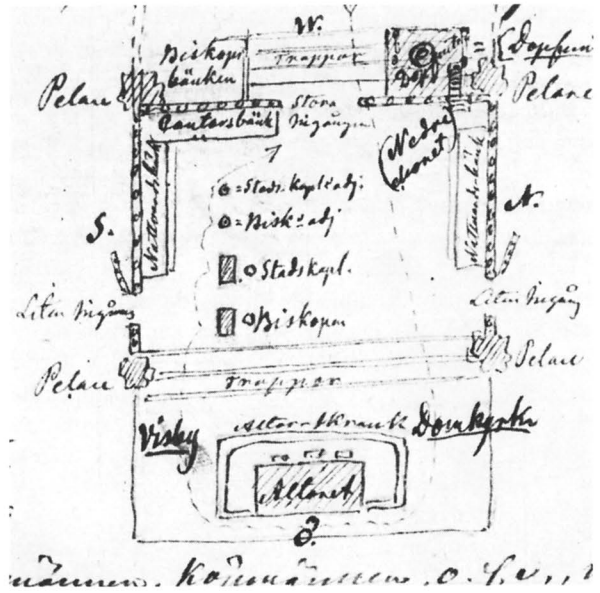 W.
Biskops
bänken
Trappor
Dop
[Dopfun
Pelare
Pelare
Stora
Ingången
Cantorsbänk
(Nedre
choret)
Nattvardsbänk
Nattvardsbänk
S.
N.
= Stads.kapl:s adj.
= Bisk:s adj
Stadskapl.
Biskopen
Liten Ingång
Liten Ingång
Pelare
Pelare
Trappor
Visby
Altar-skrank
Domkyrka
Altaret
Ö.